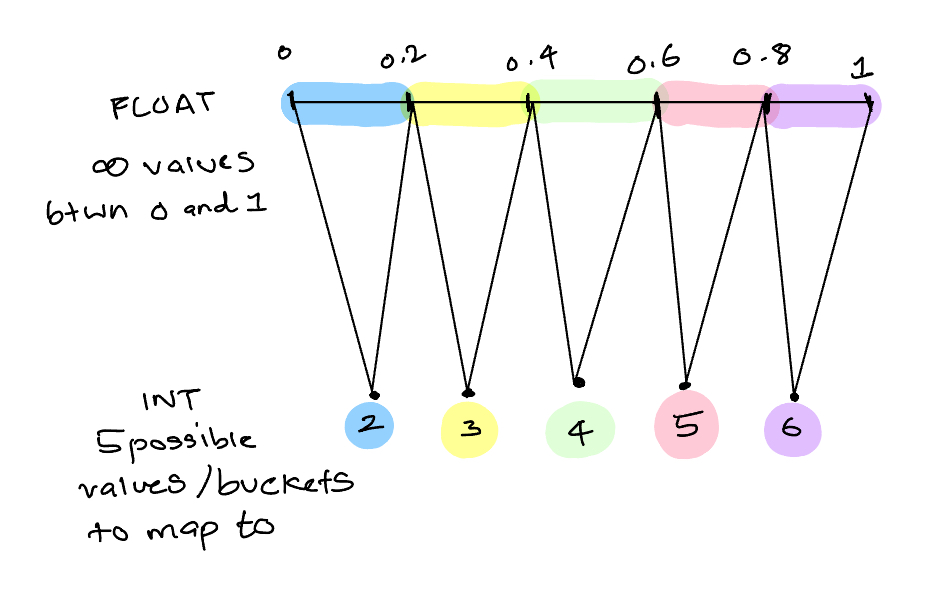 0 0.2 0.4 0.6 0.8 1
FLOAT
∞ values
btwn 0 and 1
INT
2 3 4 5 6
5 possible
values/buckets
to map to